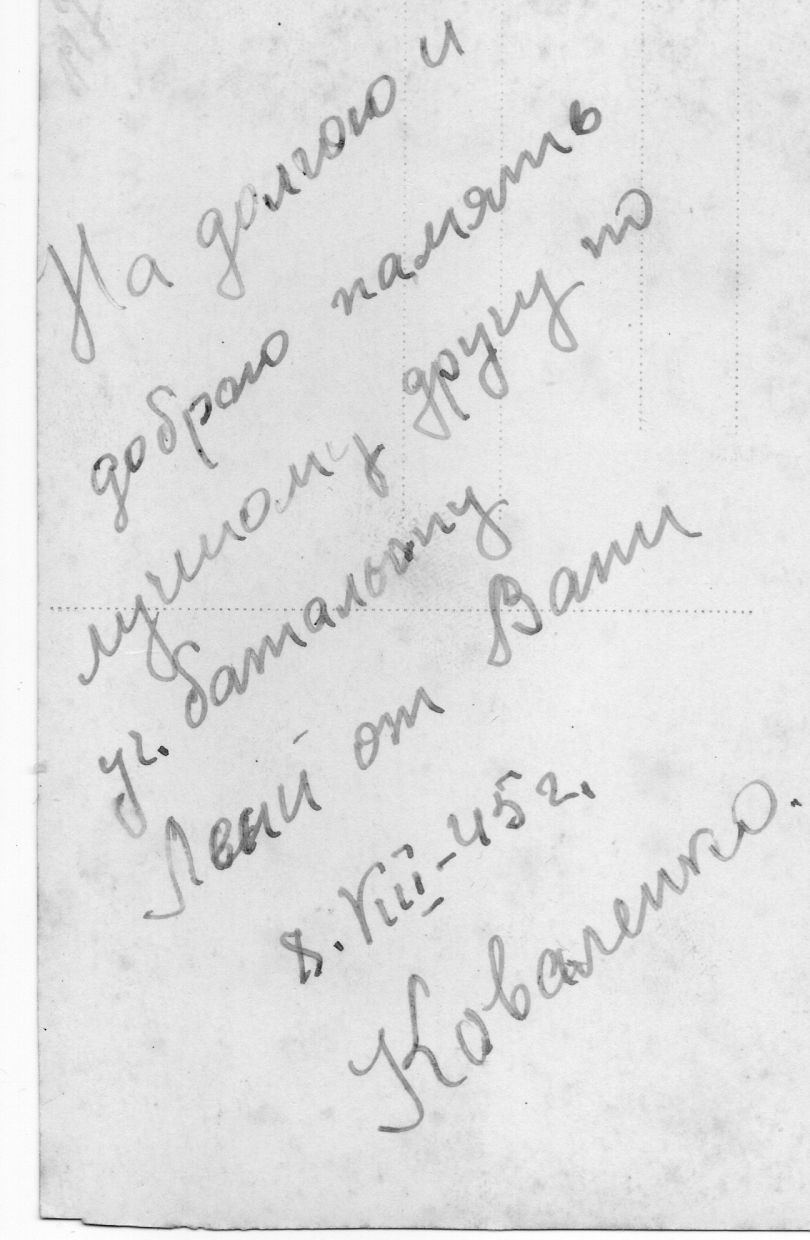 На долгою и
доброю память
лучшому другу по
уч. батальону
Лени от Вани
8.VIII-45г.
Коваленко.